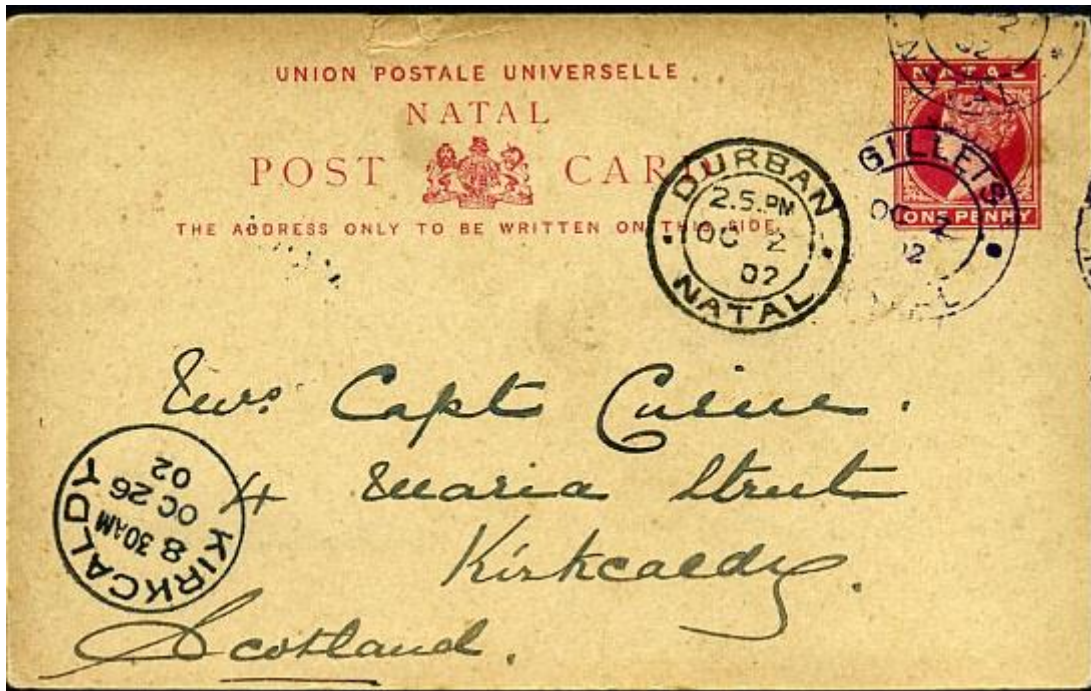 UNION POSTALE UNIVERSELLE
NATAL
POST CARD
THE ADDRESS ONLY TO BE WRITTEN ON THIS SIDE.
NATAL
ONE PENNY
DURBAN
2.5.PM
OC 2
02
NATAL
GILLETS
OC 2
02
Mrs Capt
4 Maria Street
Kirkcaldy.
Scotland.
KIRKCALDY
8 30AM
OC 26
02